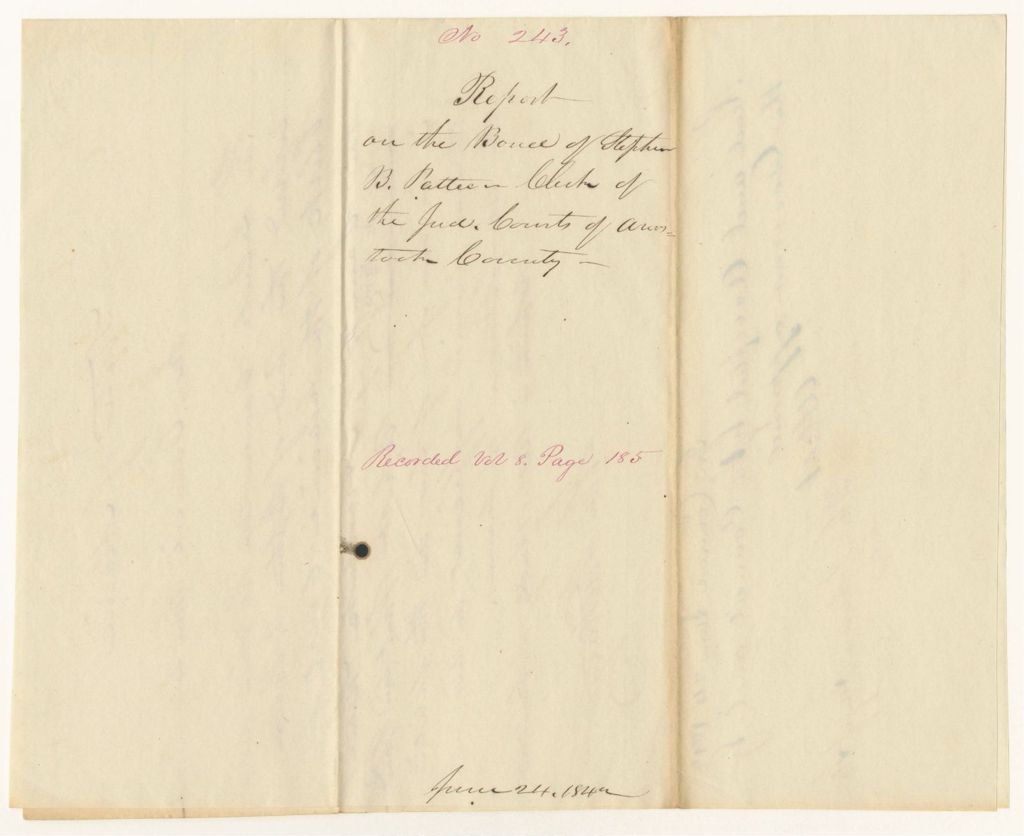 No 243.
Report
on the Bond of Stephen
B. Pattee – Clerk of
the Jud. Courts of Aroos=
took County –
Recorded Vol 8. Page 185
June 24. 184